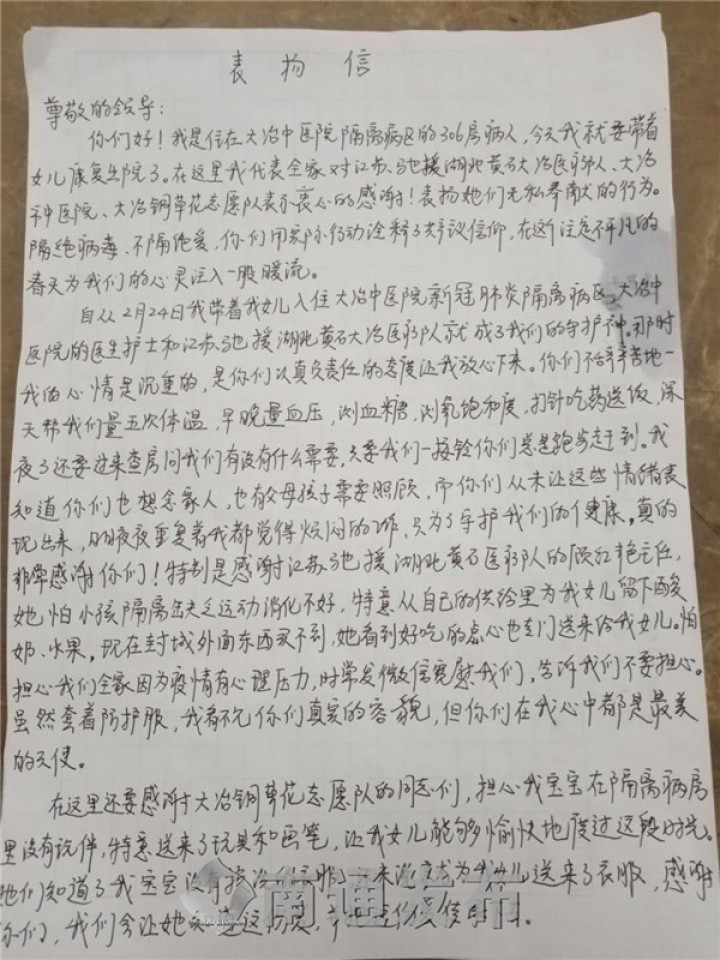 表扬信
尊敬的领导：
你们好！我是住在大冶中医院隔离病区的306房病人，今天我就要带着
女儿康复出院了。在这里我代表全家对江苏 援湖北黄石大冶医疗队、大冶
中医院、大冶铜草花志愿队表示衷心的感谢！表扬她们无私奉献 的行为。
隔绝病毒、不隔绝爱，你们用实际行动诠释了 信仰，在这个注定不平凡的
春天为我们的心灵注入一股暖流。
自从2月24日我带着我女儿入住大冶中医院新冠肺炎隔离病区，大冶中
医院的医生护士和江苏 援湖北黄石大冶医疗队就成了我们的守护神。那时
我的心情是沉重的，是你们认真负责任的态度让我放心下来。你们不辞辛苦地一
天帮我们量五次体温，早晚量血压，测血糖，测氧饱和度，打针吃药送饭，深
夜了还要过来查房问我们有没有什么需要，只要我们一按铃你们总是跑步赶到。我
知道你们也想念家人，也有父母孩子需要照顾，而你们从未让这些情绪表
现出来，日日夜夜重复着我都觉得烦闷的工作，只为了守护我们的健康，真的
非常感谢你们！特别是感谢江苏 援湖北黄石医疗队的顾红艳主任，
她怕小孩隔离缺乏运动消化不好，特意从自己的供给里为我女儿留下酸
奶、水果，现在封城外面东西买不到，她看到好吃的点心也专门送来给我女儿。怕
担心我们全家因为疫情有心理压力，时常发微信宽慰我们，告诉我们不要担心。
虽然套着防护服，我看不见你们真实的容貌，但你们在我心中都是最美
的天使。
在这里还要感谢大冶铜草花志愿队的同志们，担心我宝宝在隔离病房
里没有玩伴，特意送来了玩具和画笔，让我女儿能够愉快地度过这段时光。
他们知道了我宝宝没有换洗 衣服 为我女儿送来了衣服，感谢
你们，我们会让她
南通发布